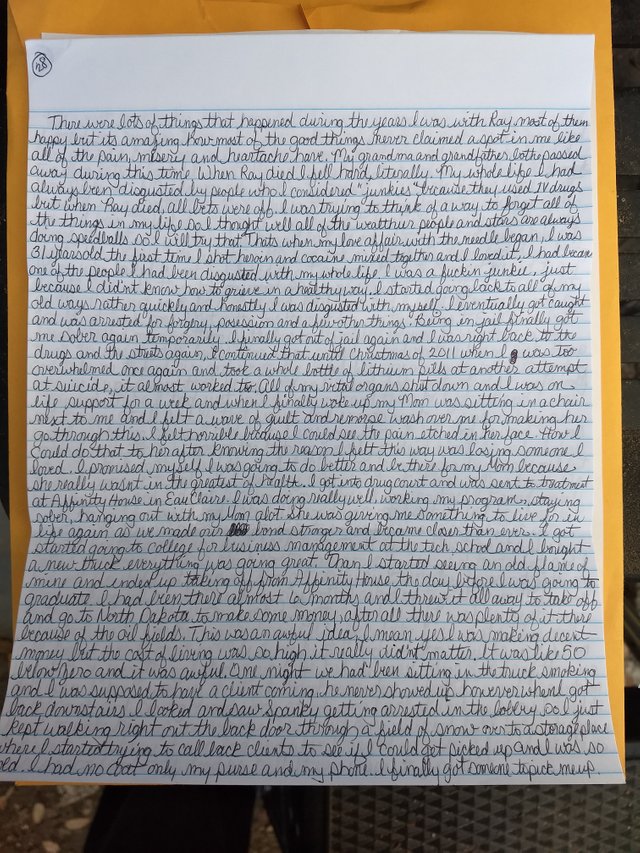 28
There were lots of things that happened during the years I was with Ray most of them
happy but its amazing how most of the good things never claimed a spot in me like
all of the pain, misery and heartache have. My grandma and grandfather bothe passed
away during this time. When Ray died I fell hard, literally. My whole life I had
always been disgusted by people who I considered "junkies" because they used IV drugs
but when Ray died, all bets were off. I was trying to think of a way to forget all of
the things in my life so I thought well all of the wealthier people and stars are always
doing speedballs so I will try that. Thats when my love affair with the needle began, I was
31 years old the first time I shot heroin and cocaine mixed together and I loved it, I had became
one of the people I had been disgusted with my whole life. I was a fuckin junkie. just
because I didn't know how to grieve in a healthy way. I started going back to all of my
old ways rather quickly and honestly I was disgusted with myself. I eventually got caught
and was arrested for forgery, posession and a few other things. Being in jail finally got
me sober again temporarily. I finally got out of jail again and I was right back to the
drugs and the streets again. I continued that until Christmas of 2011 when I was too
overwhelmed once again and took a whole bottle of lithium pills at another attempt
at suicide, it almost worked too. All of my vital organs shut down and I was on
life support for a week and when I finally woke up my Mom was sitting in a chair
next to me and I felt a wave of guilt and remorse wash over me for making her
go through this. I felt horrible because I could see the pain etched in her face. How I
could do that to her after knowing the reason I felt this way was losing someone I
loved. I promised myself I was going to do better and be there for my Mom because
she really wasnt in the greatest of health. I got into drug court and was sent to treatment
at Affinity House in Eau Claire. I was doing really well working my program, staying
sober, hanging out with my Mom alot she was giving me something to live for in
life again as we made our bond stronger and became closer than ever. I got
started going to college for business management at the tech school and I bought
a new truck everything was going great. Than I started seeing an old flame of
mine and ended up taking off from Affinity House the day before I was going to
graduate. I had been there almost 6 months and I threw it all away to take off
and go to North Dakota to make some money, after all there was plenty of it there
because of the oil fields. This was an awful idea, I mean yes I was making decent
money but the cost of living was so high it really didn't matter. It was like 50
below zero and it was awful. One night we had been sitting in the truck smoking
and I was supposed to have a client coming, he never showed up however when I got
back downstairs I looked and saw Spanky getting arrested in the lobby so I just
kept walking right out the back door through a field of snow over to a storage place
where I started trying to call back clients to see if I could get picked up and I was so
old I had no coat only my purse and my phone. I finally got someone to pick me up.